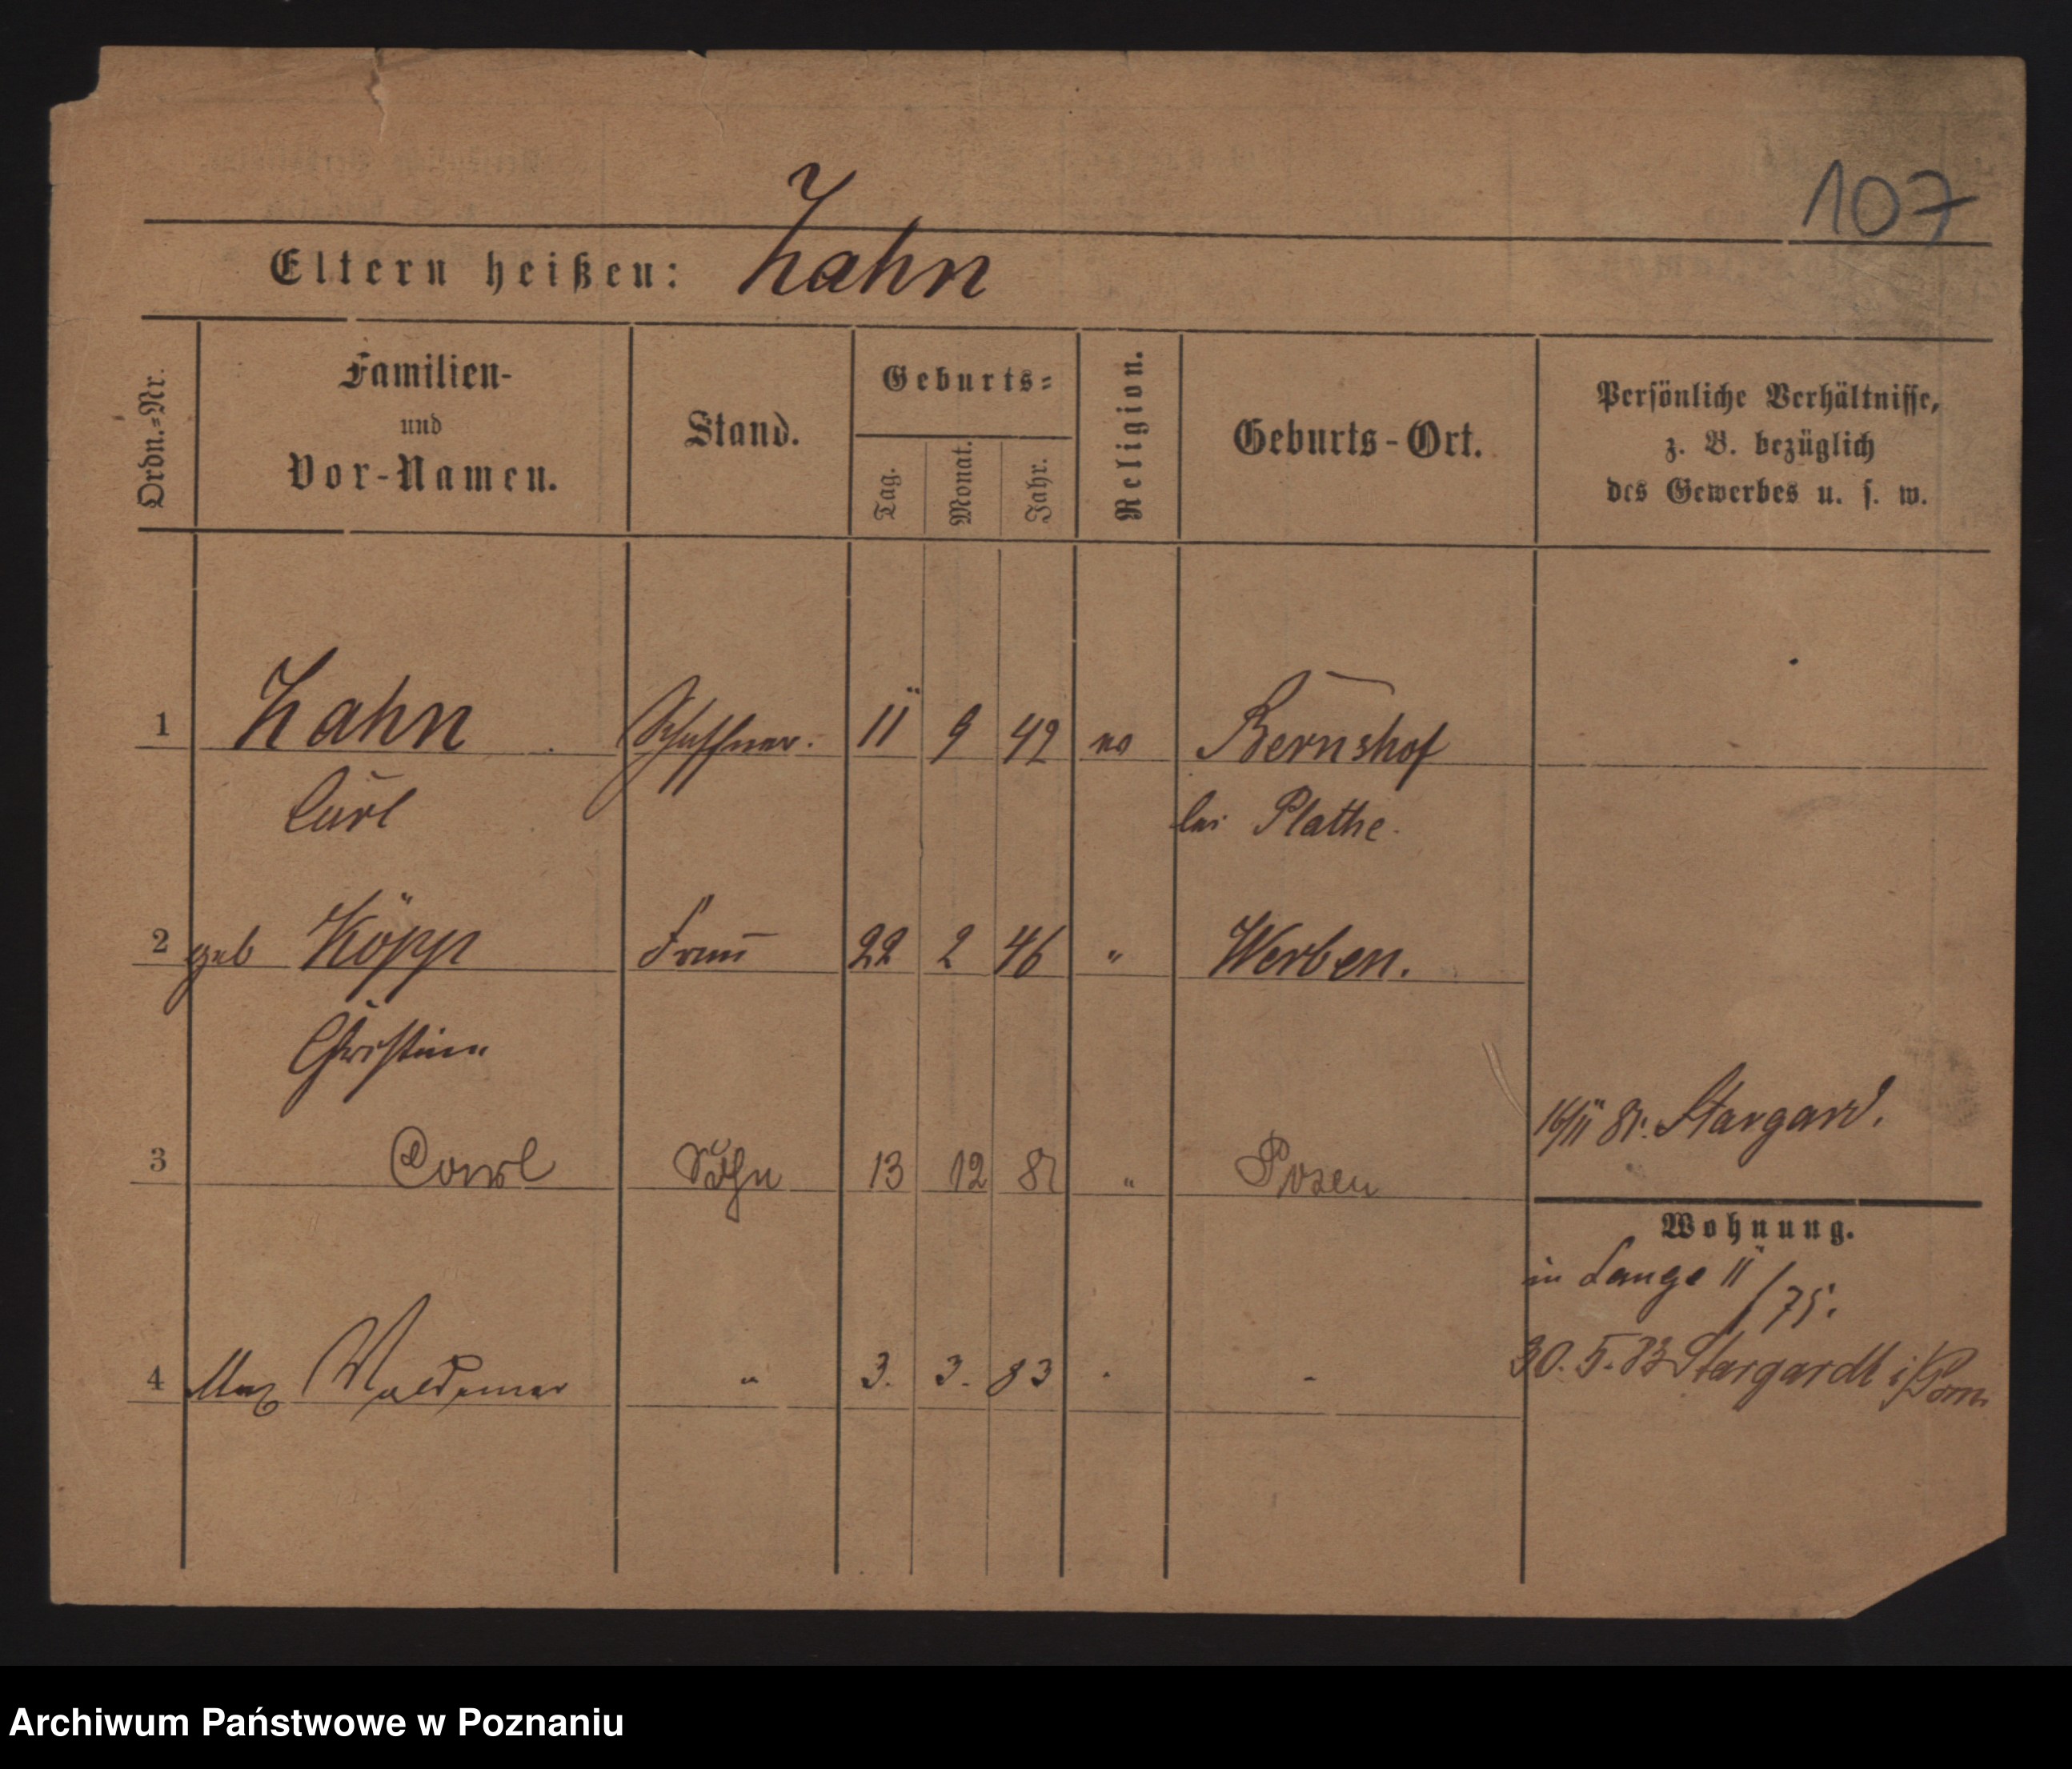 107
Eltern heißen: Zahn
Ordn.-Nr.
Familien-
und
Vor-Namen.
Stand.
Geburts-
Tag.
Monat.
Jahr.
Religion.
Geburts-Ort.
Persönliche Verhältnisse,
z. B. bezüglich
des Gewerbes u. s. w.
1 Zahn Schaffner. 11 9 42 ev Bernshof
Carl bei Plathe.
2 geb Köpp Frau 22 2 46 " Werben.
Christine
16/11 81. Stargard.
3 Carl Sohn 13 12 81 " Posen
Wohnung.
in Lange 11/75.
4 Max Waldemar " 3. 3. 83 " "
30. 5. 83 Stargardt i/Pom.
Archiwum Państwowe w Poznaniu